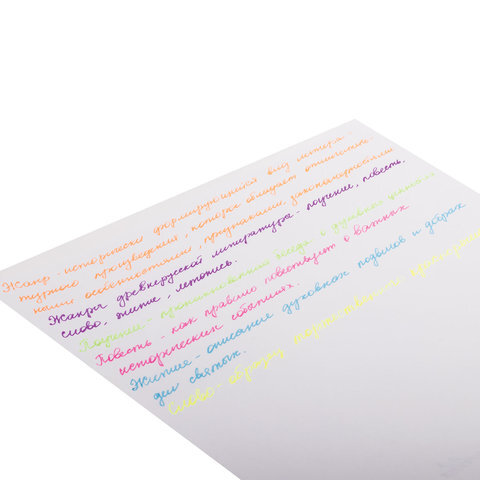 Жанр - исторически формирующийся вид литера-
турного произведения, которое обладает отличитель-
ными особенностями, признаками, закономерностями
Жанры древнерусской литературы - поучение, повесть,
слово, житие, летопись.
Поучение - беседа о духовных ценностях
Повесть - как правило повествует о важных
исторических событиях.
Житие - описание духовных подвигов и добрых
дел святых.
Слово - образец торжественного красноречия